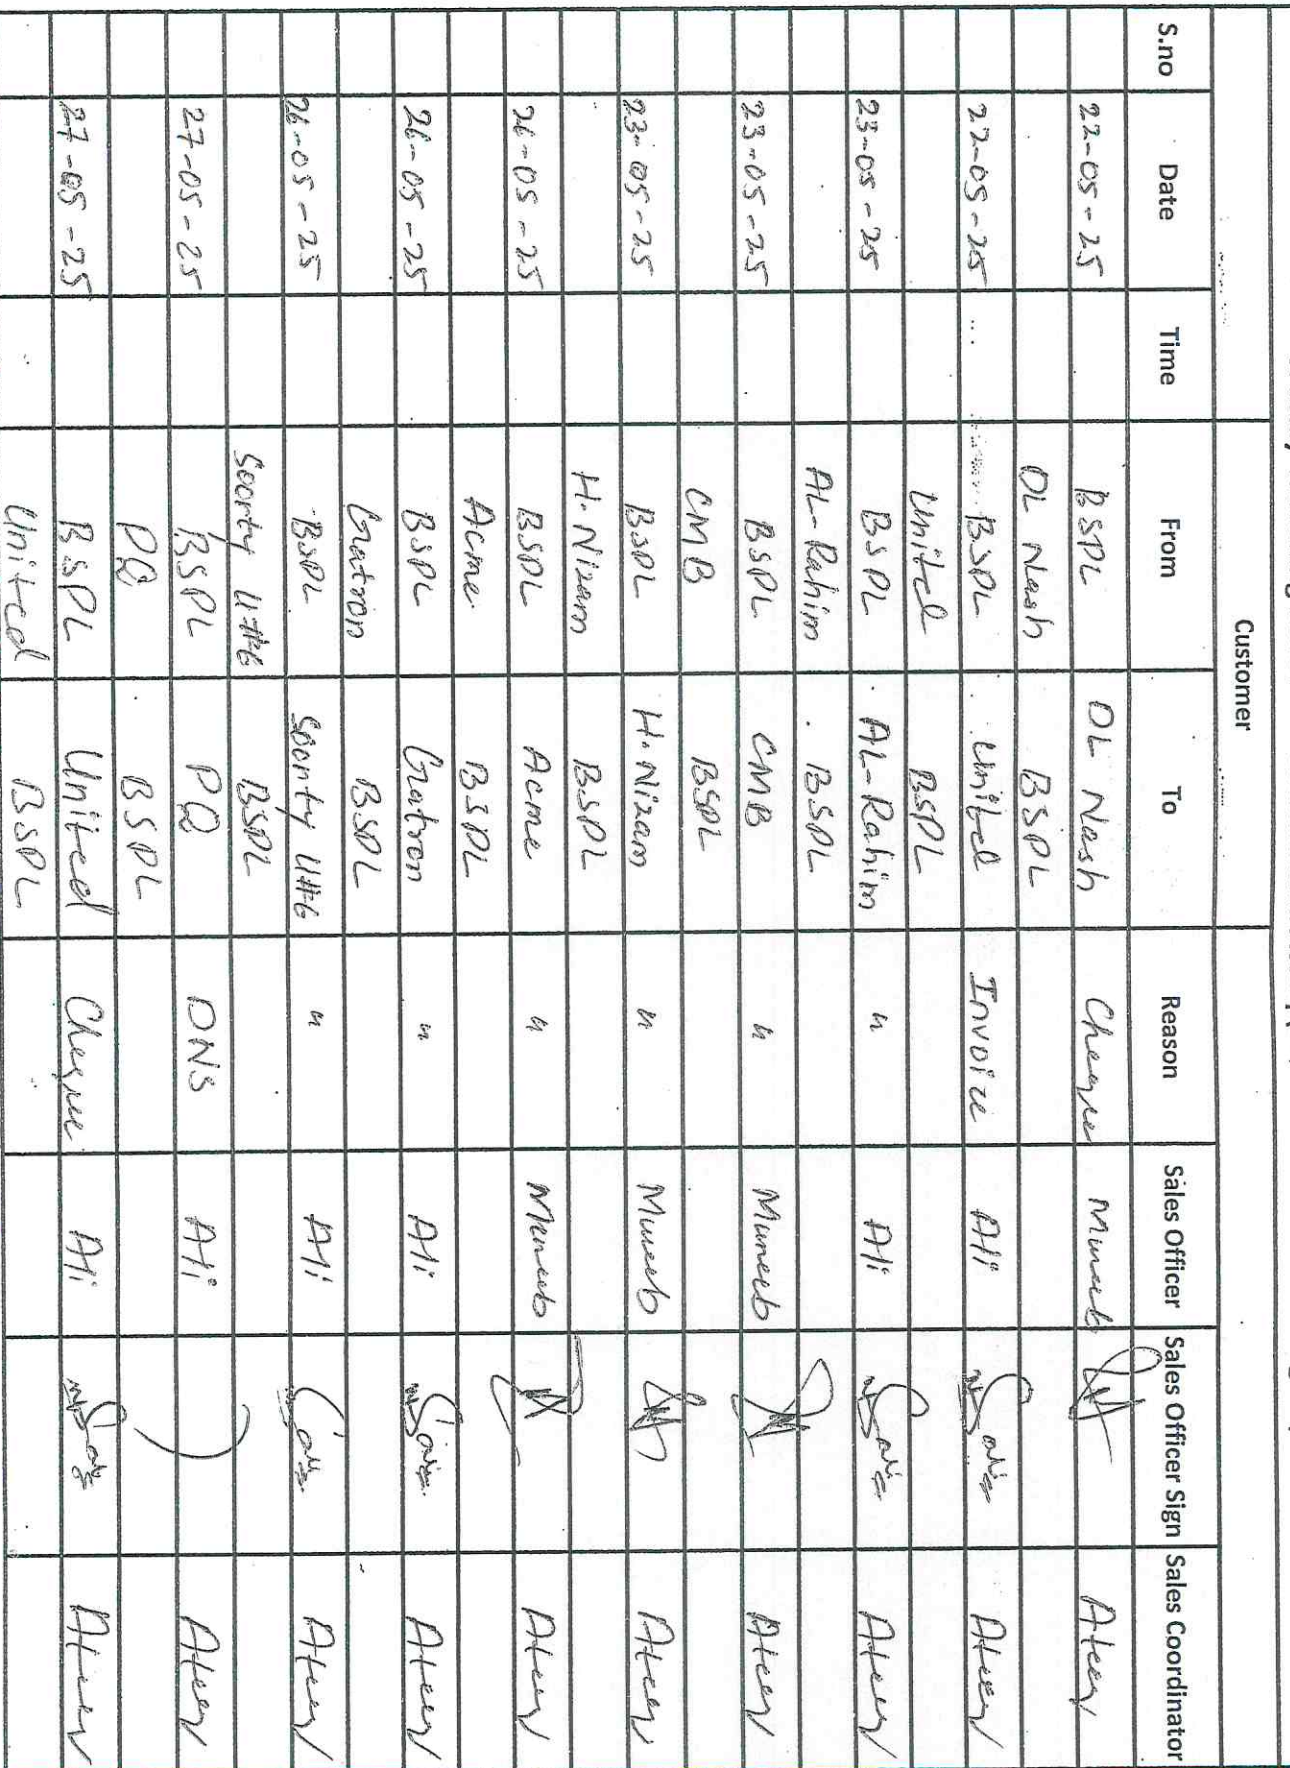 Customer
S.no Date Time From To Reason Sales Officer Sales Officer Sign Sales Coordinator
22-05-25 BSPL DL Nash Cheque Muneeb Ateeq
DL Nash BSPL
22-05-25 BSPL United Invoice Ali Ateeq
United BSPL
23-05-25 BSPL AL-Rahim " Ali Ateeq
AL-Rahim BSPL
23-05-25 BSPL CMB " Muneeb Ateeq
CMB BSPL
23-05-25 BSPL H.Nizam " Muneeb Ateeq
H.Nizam BSPL
26-05-25 BSPL Acme " Muneeb Ateeq
Acme BSPL
26-05-25 BSPL Gatron " Ali Ateeq
Gatron BSPL
26-05-25 BSPL Soorty U#6 " Ali Ateeq
Soorty U#6 BSPL
27-05-25 BSPL PQ DNS Ali Ateeq
PQ BSPL
27-05-25 BSPL United Cheque Ali Ateeq
United BSPL